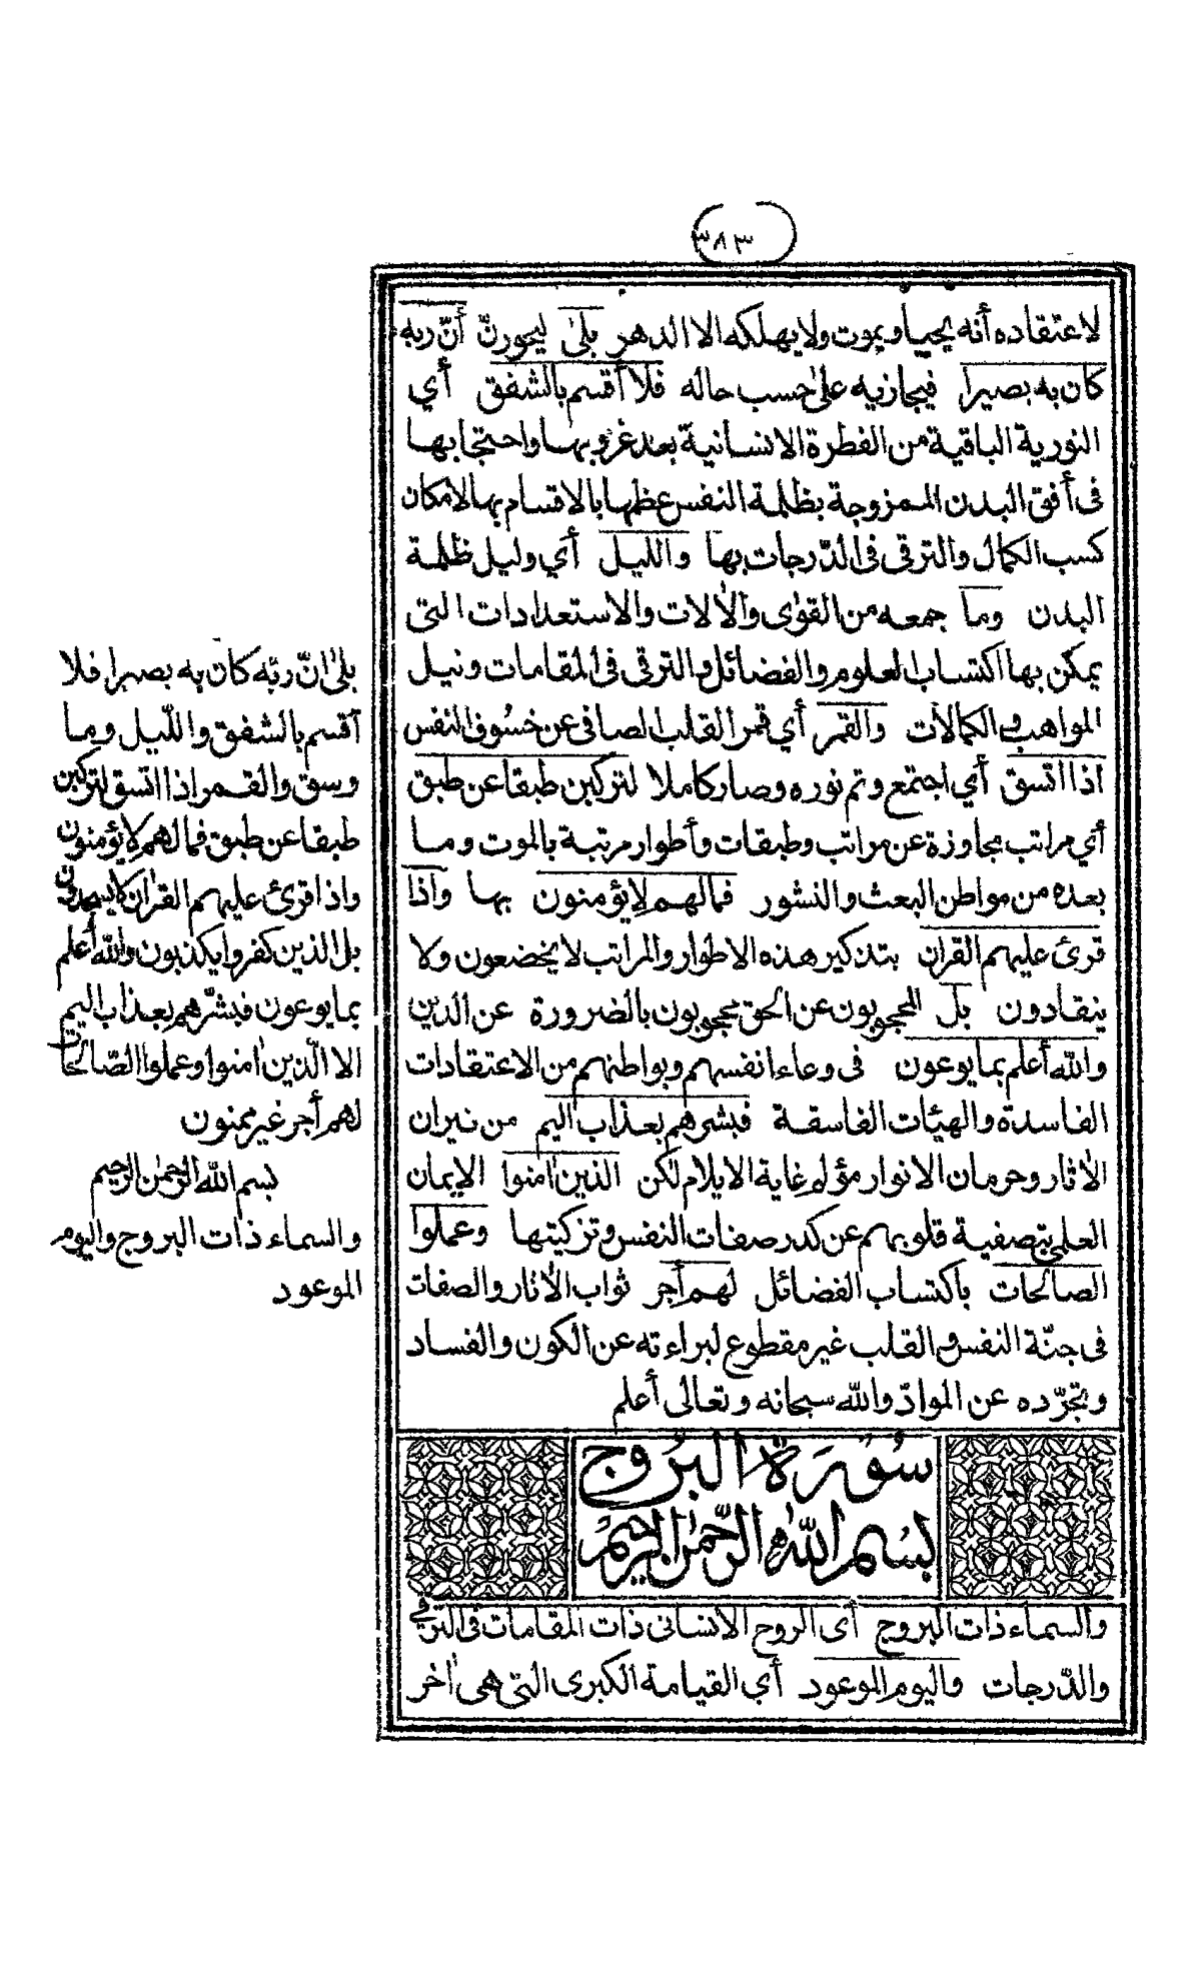 ٣٨٣
لاعتقاده أنه يحييا ويموت ولا يهلكه الا الدهر بلى ليحورنّ أنّ ربه
كان به بصيرا فيجازيه على حسب حاله فلا أقسم بالشفق أي
النورية الباقية من الفطرة الانسانية بعد غروبها واحتجابها
فى أفق البدن الممزوجة بظلمة النفس عظمها بالاقسام بها لامكان
كسب الكمال والترقى فى الدّرجات بها والليل أي وليل ظلمة
البدن وما جمعه من القوى والآلات والاستعدادات التى
يمكن بها اكتساب العلوم والفضائل والترقى فى المقامات ونيل
المواهب والكمالات والقمر أي قمر القلب الصافى عن خسوف النفس
اذا اتسق أي اجتمع وتم نوره وصار كاملا لتركبن طبقا عن طبق
أي مراتب مجاوزة عن مراتب وطبقات وأطوار مرتبة بالموت وما
بعده من مواطن البعث والنشور فمالهم لايؤمنون بها واذا
قرئ عليهم القران بتذكير هذه الاطوار والمراتب لايخضعون ولا
ينقادون بل المحجوبون عن الحق محجوبون بالضرورة عن الدين
والله أعلم بما يوعون فى وعاء انفسهم وبواطنهم من الاعتقادات
الفاسدة والهيئات الفاسقة فبشرهم بعذاب اليم من نيران
الآثار وحرمان الانوار مؤلم غاية الايلام لكن الذين اٰمنوا الإيمان
العلمى بتصفية قلوبهم عن كدر صفات النفس وتزكيتها وعملوا
الصالحات باكتساب الفضائل لهم أجر ثواب الآثار والصفات
فى جنّة النفس والقلب غير مقطوع لبراءته عن الكون والفساد
وتجرّده عن الموادّ والله سبحانه وتعالى أعلم
سُورَة البُرُوج
بسم الله الرّحمٰن الرحيم
والسماء ذات البروج أى الروح الانسانى ذات المقامات فى الترقى
والدّرجات واليوم الموعود أي القيامة الكبرى التى هى اٰخر
بلىٰ انّ ربّه كان به بصيرا فلا
أقسم بالشفق والّليل وما
وسق والقمر اذا اتسق لتركبن
طبقا عن طبق فمالهم لايؤمنون
واذا قرئ عليهم القرآن لايسجدون
بل الذين كفروا يكذبون والله أعلم
بما يوعون فبشّرهم بعذاب اليم
الا الّذين اٰمنوا وعملوا الصّالحات
لهم أجر غير ممنون
بسم الله الرحمٰن الرحيم
والسماء ذات البروج واليوم
الموعود